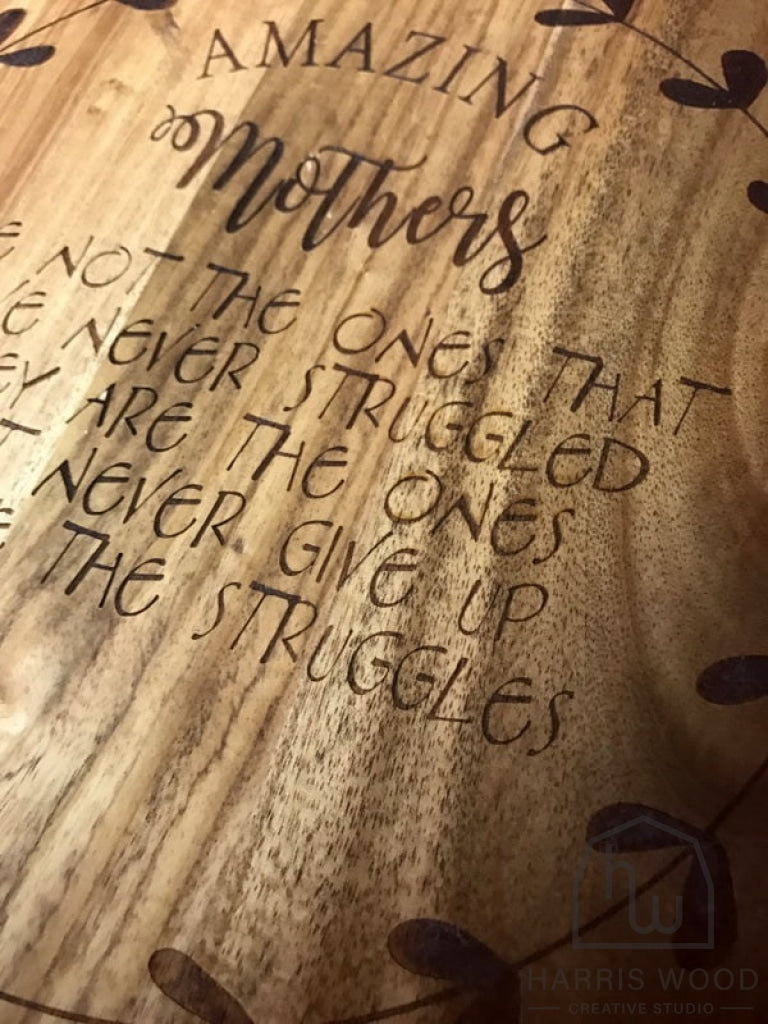 AMAZING
Mothers
NOT THE ONES THAT
NEVER STRUGGLED
ARE THE ONES
NEVER GIVE UP
THE STRUGGLES
hw
HARRIS WOOD
CREATIVE STUDIO